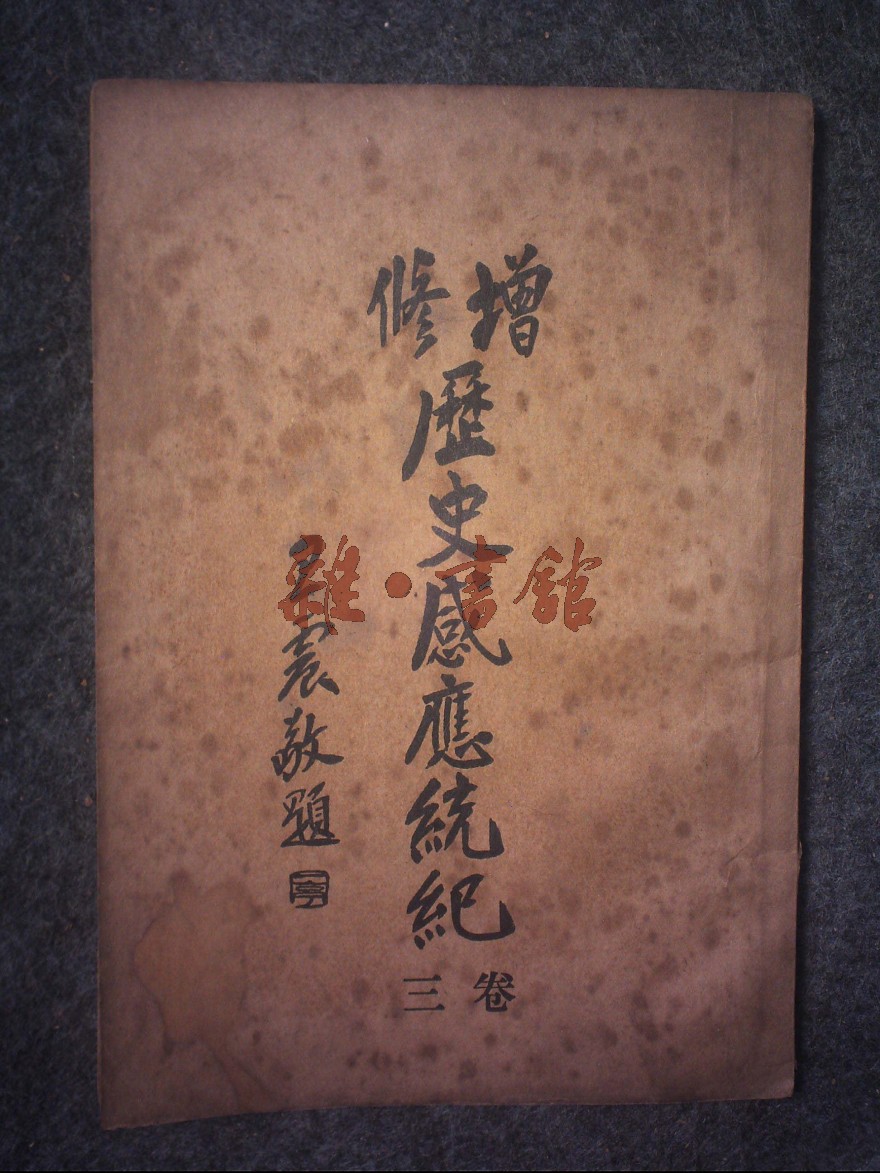 增修
歷史感應統紀
卷三
震敬題
雜·書館